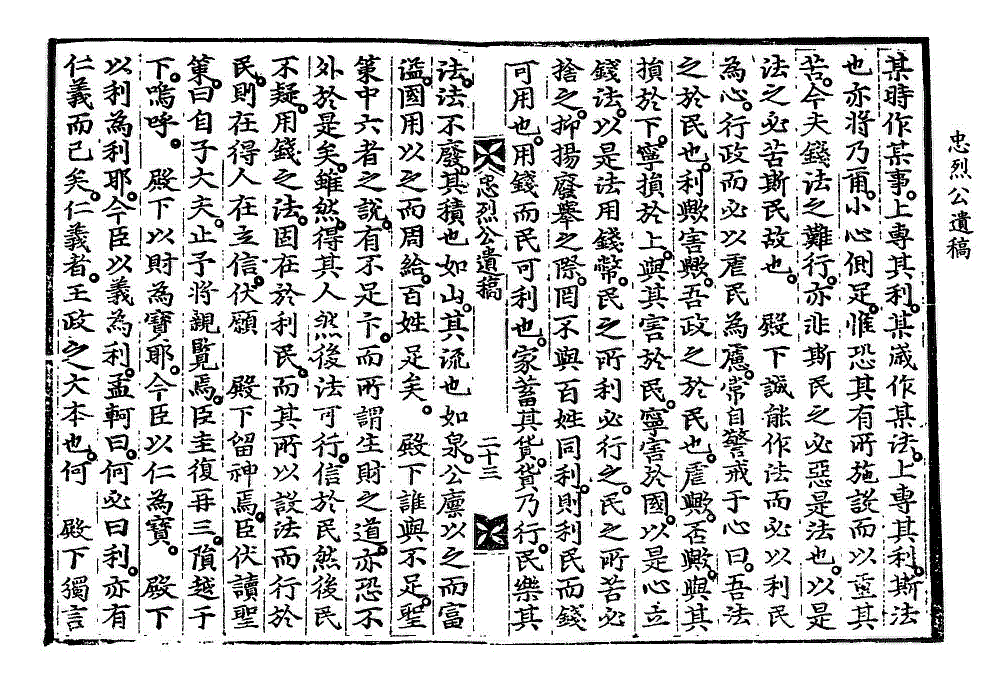 忠烈公遺稿
某時作某事。上專其利。某歲作某法。上專其利。斯法
也亦將乃甭。小心側足。惟恐其有所施說而以重其
苦。今夫錢法之難行。亦非斯民之必惡是法也。以是
法之必苦斯民故也 殿下誠能作法而必以利民
為心。行政而必以虐民為慮。常自警戒于心曰。吾法
之於民也。利歟害歟。吾政之於民也。虐歟。否歟。與其
損於下。寧損於上。與其害於民。寧害於國。以是心立
錢法。以是法用錢幣。民之所利必行之。民之所苦必
捨之。抑揚廢擧之際。罔不與百姓同利。則利民而錢
可用也。用錢而民可利也。家蓄其貨。貨乃行。民樂其
忠烈公遺稿 二十三
法。法不廢。其積也如山。其流也如泉。公廩以之而富
溢。國用以之而周給。百姓足矣。 殿下誰與不足。聖
策中六者之說。有不足下。而所謂生財之道。亦恐不
外於是矣。雖然。得其人然後法可行。信於民然後民
不疑。用錢之法。固在於利民。而其所以設法而行於
民。則在得人在立信。伏願 殿下留神焉。臣伏讀聖
策。曰自子大夫。止予將親覽焉。臣圭復再三。隕越于
下。嗚呼。 殿下以財為寶耶。今臣以仁為寶。 殿下
以利為利耶。今臣以義為利。孟軻曰。何必曰利。亦有
仁義而已矣。仁義者。王政之大本也。何 殿下獨言